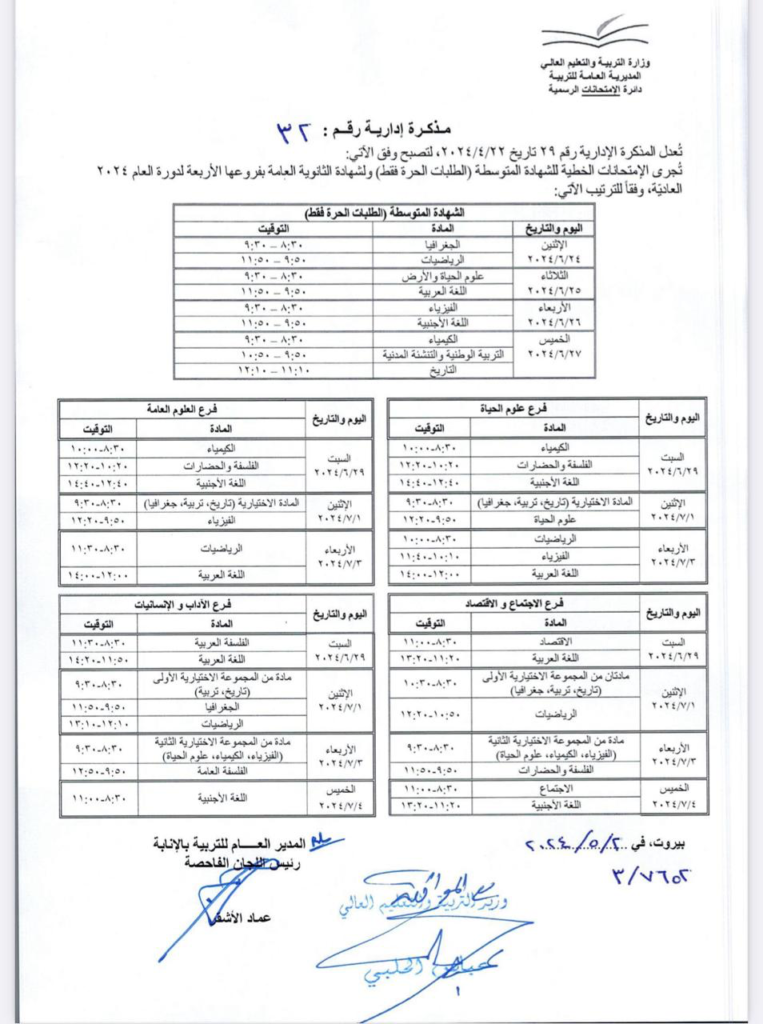 وزارة التربية والتعليم العالي
المديرية العامة للتربية
دائرة الإمتحانات الرسمية
مذكرة إدارية رقم : ٣٢
تُعدل المذكرة الإدارية رقم ٢٩ تاريخ ٢٠٢٤/٤/٢٢، لتصبح وفق الآتي:
تُجرى الإمتحانات الخطية للشهادة المتوسطة (الطلبات الحرة فقط) ولشهادة الثانوية العامة بفروعها الأربعة لدورة العام ٢٠٢٤
العاديّة، وفقاً للترتيب الآتي:
الشهادة المتوسطة (الطلبات الحرة فقط)
اليوم والتاريخ المادة التوقيت
الإثنين الجغرافيا ٨:٣٠ – ٩:٣٠
٢٠٢٤/٦/٢٤ الرياضيات ٩:٥٠ – ١١:٥٠
الثلاثاء علوم الحياة والأرض ٨:٣٠ – ٩:٣٠
٢٠٢٤/٦/٢٥ اللغة العربية ٩:٥٠ – ١١:٥٠
الأربعاء الفيزياء ٨:٣٠ – ٩:٣٠
٢٠٢٤/٦/٢٦ اللغة الأجنبية ٩:٥٠ – ١١:٥٠
الخميس الكيمياء ٨:٣٠ – ٩:٣٠
٢٠٢٤/٦/٢٧ التربية الوطنية والتنشئة المدنية ٩:٥٠ – ١٠:٥٠
التاريخ ١١:١٠ – ١٢:١٠
اليوم والتاريخ فرع علوم الحياة
المادة التوقيت
السبت الكيمياء ٨:٣٠-١٠:٠٠
٢٠٢٤/٦/٢٩ الفلسفة والحضارات ١٠:٢٠-١٢:٢٠
اللغة الأجنبية ١٢:٤٠-١٤:٤٠
الإثنين المادة الاختيارية (تاريخ، تربية، جغرافيا) ٨:٣٠-٩:٣٠
٢٠٢٤/٧/١ علوم الحياة ٩:٥٠-١٢:٢٠
الأربعاء الرياضيات ٨:٣٠-١٠:٠٠
٢٠٢٤/٧/٣ الفيزياء ١٠:١٠-١١:٤٠
اللغة العربية ١٢:٠٠-١٤:٠٠
اليوم والتاريخ فرع العلوم العامة
المادة التوقيت
السبت الكيمياء ٨:٣٠-١٠:٠٠
٢٠٢٤/٦/٢٩ الفلسفة والحضارات ١٠:٢٠-١٢:٢٠
اللغة الأجنبية ١٢:٤٠-١٤:٤٠
الإثنين المادة الاختيارية (تاريخ، تربية، جغرافيا) ٨:٣٠-٩:٣٠
٢٠٢٤/٧/١ الفيزياء ٩:٥٠-١٢:٢٠
الأربعاء الرياضيات ٨:٣٠-١١:٣٠
٢٠٢٤/٧/٣ اللغة العربية ١٢:٠٠-١٤:٠٠
اليوم والتاريخ فرع الاجتماع و الاقتصاد
المادة التوقيت
السبت الاقتصاد ٨:٣٠-١١:٠٠
٢٠٢٤/٦/٢٩ اللغة العربية ١١:٢٠-١٣:٢٠
الإثنين مادتان من المجموعة الاختيارية الأولى ٨:٣٠-١٠:٣٠
٢٠٢٤/٧/١ (تاريخ، تربية، جغرافيا)
الرياضيات ١٠:٥٠-١٢:٢٠
الأربعاء مادة من المجموعة الاختيارية الثانية ٨:٣٠-٩:٣٠
٢٠٢٤/٧/٣ (الفيزياء، الكيمياء، علوم الحياة)
الفلسفة والحضارات ٩:٥٠-١١:٥٠
الخميس الاجتماع ٨:٣٠-١١:٠٠
٢٠٢٤/٧/٤ اللغة الأجنبية ١١:٢٠-١٣:٢٠
اليوم والتاريخ فرع الآداب و الإنسانيات
المادة التوقيت
السبت الفلسفة العربية ٨:٣٠-١١:٣٠
٢٠٢٤/٦/٢٩ اللغة العربية ١١:٥٠-١٤:٢٠
الإثنين مادة من المجموعة الاختيارية الأولى ٨:٣٠-٩:٣٠
٢٠٢٤/٧/١ (تاريخ، تربية)
الجغرافيا ٩:٥٠-١١:٥٠
الرياضيات ١٢:١٠-١٣:١٠
الأربعاء مادة من المجموعة الاختيارية الثانية ٨:٣٠-٩:٣٠
٢٠٢٤/٧/٣ (الفيزياء، الكيمياء، علوم الحياة)
الفلسفة العامة ٩:٥٠-١٢:٥٠
الخميس اللغة الأجنبية ٨:٣٠-١١:٠٠
٢٠٢٤/٧/٤
بيروت، في ٢٠٢٤/٥/٢
٣/٧٦٥٢
المدير العـــام للتربية بالإنابة
رئيس اللجان الفاحصة
عماد الأشقر
مع الموافقة
وزير التربية والتعليم العالي
عباس الحلبي